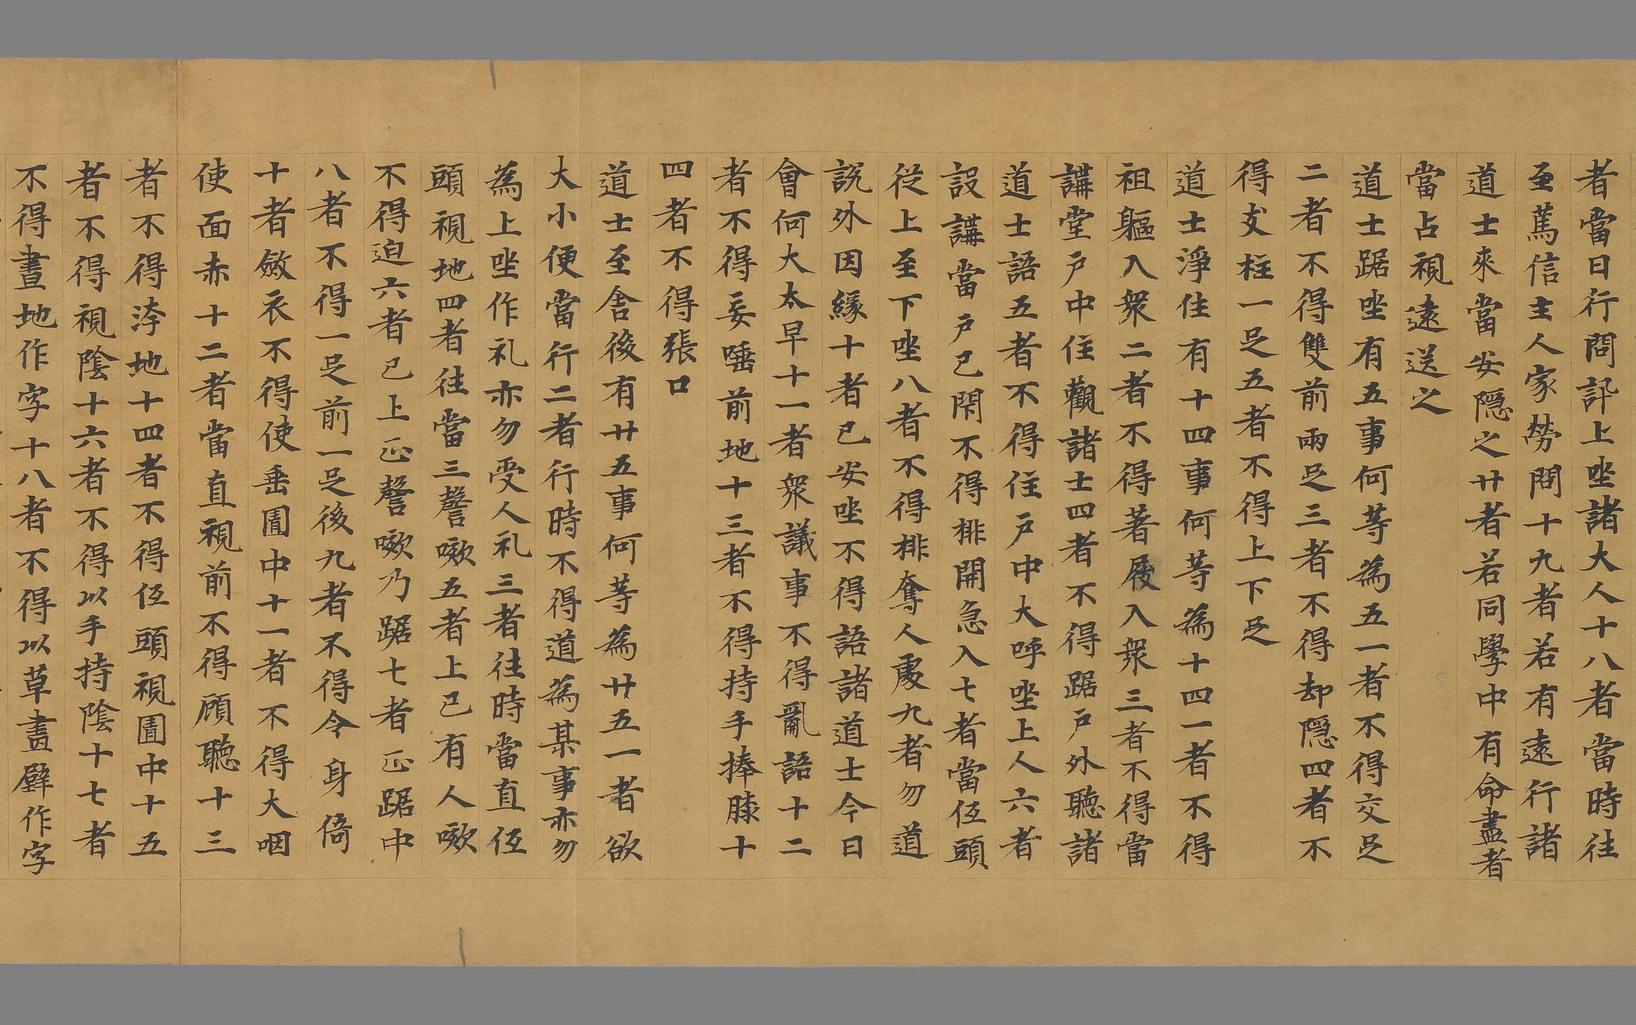 者當日行問訊上坐諸大人十八者當時往
至蔦信主人家勞問十九者若有遠行諸
道士來當安隱之廿者若同學中有命盡者
當占視遠送之
道士踞坐有五事何等為五一者不得交足
二者不得雙前兩足三者不得却隱四者不
得支柱一足五者不得上下足
道士淨住有十四事何等為十四一者不得
袒軀入衆二者不得著屐入衆三者不得當
講堂戶中住觀諸士四者不得踞戶外聽諸
道士語五者不得住戶中大呼坐上人六者
設講當戶已閇不得排開急入七者當伍頭
從上至下坐八者不得排奪人處九者勿道
說外因緣十者已安坐不得語諸道士今日
會何大太早十一者衆議事不得亂語十二
者不得妄唾前地十三者不得持手捧膝十
四者不得張口
道士至舍後有廿五事何等為廿五一者欲
大小便當行二者行時不得道為某事亦勿
為上坐作礼亦勿受人礼三者往時當直伍
頭視地四者往當三謦噷五者上已有人噷
不得迫六者已上正謦噷乃踞七者正踞中
八者不得一足前一足後九者不得令身倚
十者斂衣不得使垂圊中十一者不得大咽
使面赤十二者當直視前不得顧聽十三
者不得洿地十四者不得伍頭視圊中十五
者不得視陰十六者不得以手持陰十七者
不得畫地作字十八者不得以草畫壁作字